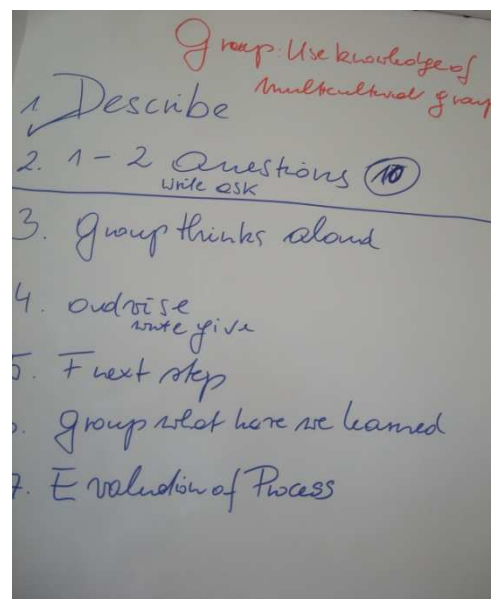 Group: Use knowledge of
multicultural group
1 Describe
2. 1-2 Questions 10
write ask
3. Group thinks aloud
4. advise
write give
5. F next step
6. group what have we learned
7. Evaluation of Process